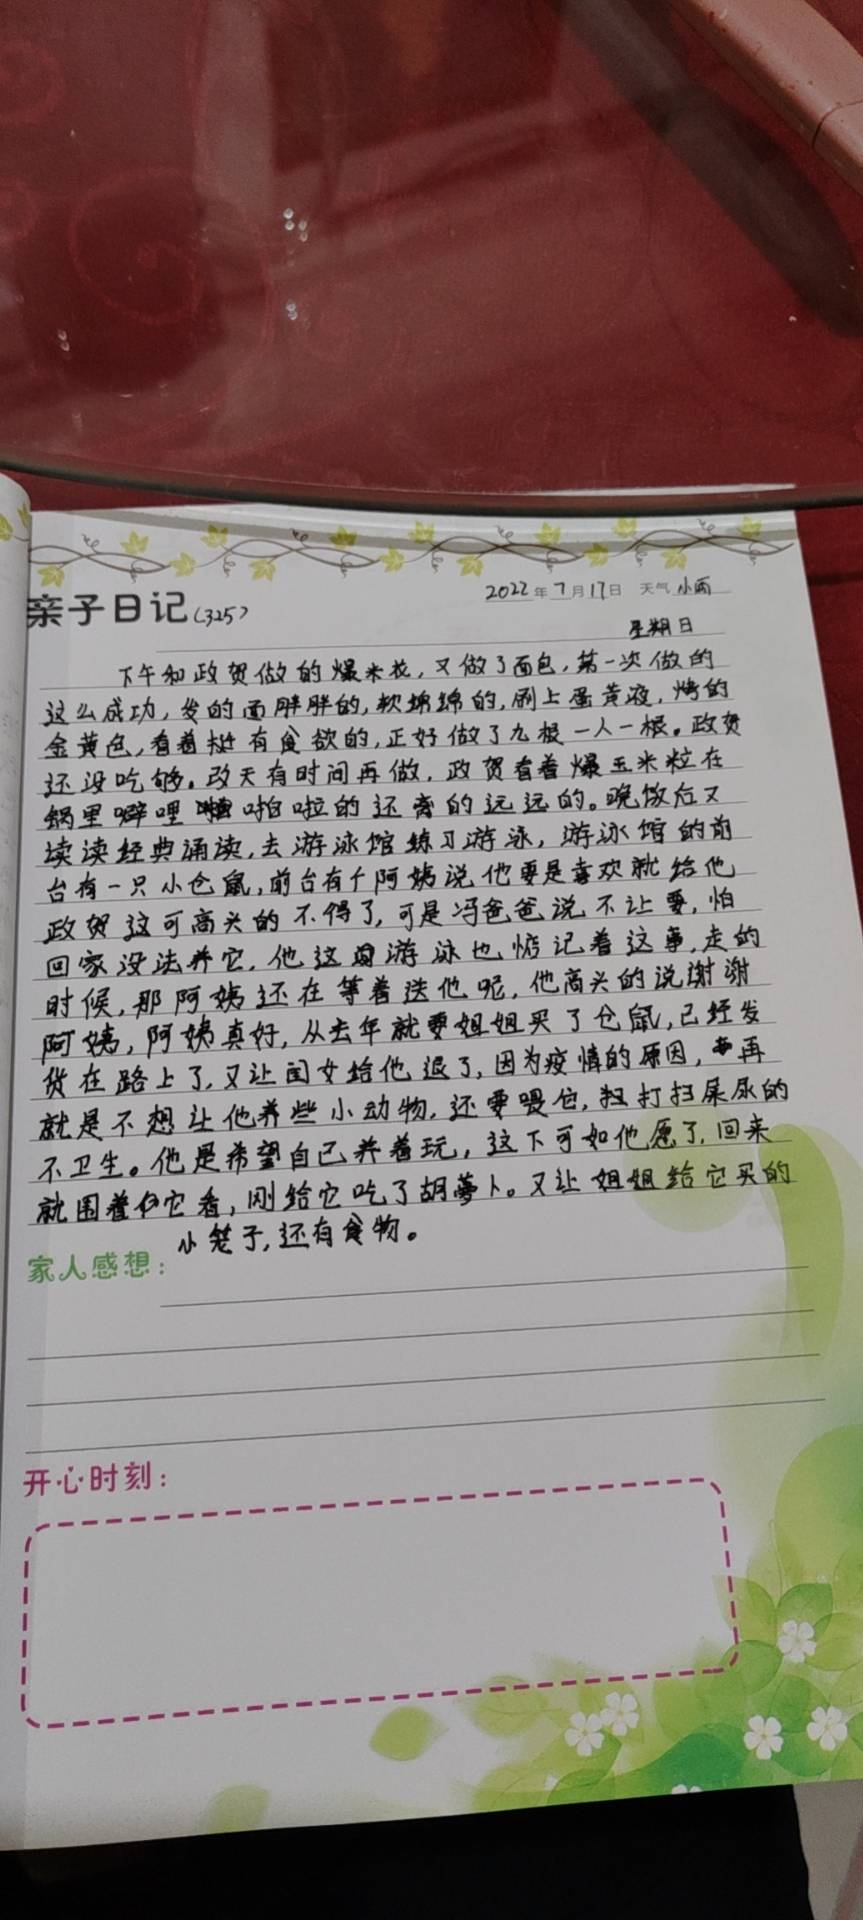 亲子日记(325)
2022年7月17日 天气小雨
星期日
下午和政贺做的爆米花，又做了面包，第一次做的
这么成功，发的面胖胖的，软绵绵的，刷上蛋黄液，烤的
金黄色，看着挺有食欲的，正好做了九根一人一根。政贺
还没吃够。改天有时间再做，政贺看着爆玉米粒在
锅里噼哩啪啦的还离的远远的。晚饭后又
读读经典诵读，去游泳馆练习游泳，游泳馆的前
台有一只小仓鼠，前台有个阿姨说他要是喜欢就给他
政贺这可高兴的不得了，可是冯爸爸说不让要，怕
回家没法养它，他这游泳也惦记着这事，走的
时候，那阿姨还在等着送他呢，他高兴的说谢谢
阿姨，阿姨真好，从去年就要姐姐买了仓鼠，已经发
货在路上了，又让闺女给他退了，因为疫情的原因，再
就是不想让他养些小动物，还要喂住，打扫屎尿的
不卫生。他是希望自己养着玩，这下可如他愿了，回来
就围着它看，刚给它吃了胡萝卜。又让姐姐给它买的
小笼子，还有食物。
家人感想：
开心时刻：